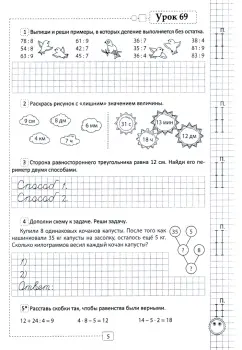 Урок 69
1 Выпиши и реши примеры, в которых деление выполняется без остатка.
78 : 8 61 : 9 42 : 7 36 : 7 38 : 4
54 : 8 42 : 6 45 : 7 35 : 6 81 : 9
83 : 9 45 : 6 36 : 5 63 : 9
2 Раскрась рисунок с «лишним» значением величины.
9 см 8 дм 6 мм 31 с 13 мин
7 км 4 м 18 ч 12 м
3 Сторона равностороннего треугольника равна 12 см. Найди его пе-
риметр двумя способами.
Способ 1.
Способ 2.
4 Дополни схему к задаче. Реши задачу.
Купили 8 одинаковых кочанов капусты. После того как
нашинковали 35 кг капусты на засолку, осталось ещё 5 кг.
Сколько килограммов весил каждый кочан капусты?
35 5
? 8
?
1)
2)
Ответ
5* Расставь скобки так, чтобы равенства были верными.
12 + 24 : 4 = 9 4 · 8 - 5 = 12 14 - 5 · 2 = 18
5